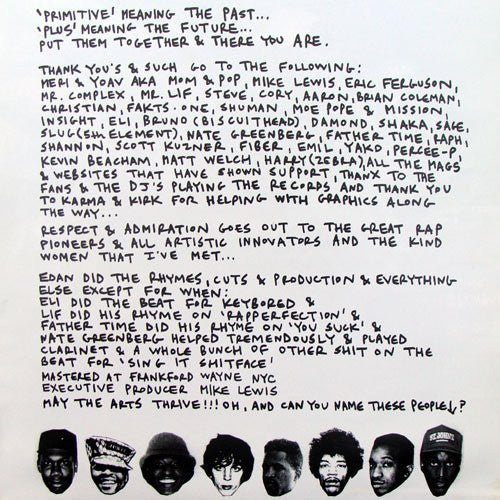 'PRIMITIVE' MEANING THE PAST...
'PLUS' MEANING THE FUTURE...
PUT THEM TOGETHER & THERE YOU ARE.
THANK YOU'S & SUCH GO TO THE FOLLOWING:
MERI & YOAV AKA MOM & POP, MIKE LEWIS, ERIC FERGUSON,
MR. COMPLEX, MR. LIF, STEVE, CORY, AARON, BRIAN COLEMAN,
CHRISTIAN, FAKTS·ONE, SHUMAN, MOE POPE & MISSION,
INSIGHT, ELI, BRUNO (BISCUITHEAD), DAMOND, SHAKA, SAGE,
SLUG (5th ELEMENT), NATE GREENBERG, FATHER TIME, RAPHI
SHANNON, SCOTT KUZNER, FIBER, EMIL, YAKO, PERCEE-P,
KEVIN BEACHAM, MATT WELCH, HARRY (ZEBRA), ALL THE MAGS
& WEBSITES THAT HAVE SHOWN SUPPORT, THANX TO THE
FANS & THE DJ'S PLAYING THE RECORDS AND THANK YOU
TO KARMA & KIRK FOR HELPING WITH GRAPHICS ALONG
THE WAY...
RESPECT & ADMIRATION GOES OUT TO THE GREAT RAP
PIONEERS & ALL ARTISTIC INNOVATORS AND THE KIND
WOMEN THAT I'VE MET...
EDAN DID THE RHYMES, CUTS & PRODUCTION & EVERYTHING
ELSE EXCEPT FOR WHEN:
ELI DID THE BEAT FOR KEYBORED &
LIF DID HIS RHYME ON 'RAPPERFECTION' &
FATHER TIME DID HIS RHYME ON 'YOU SUCK' &
NATE GREENBERG HELPED TREMENDOUSLY & PLAYED
CLARINET & A WHOLE BUNCH OF OTHER SHIT ON THE
BEAT FOR 'SING IT SHITFACE'
MASTERED AT FRANKFORD WAYNE NYC
EXECUTIVE PRODUCER MIKE LEWIS
MAY THE ARTS THRIVE!!! OH, AND CAN YOU NAME THESE PEOPLE↓?
ST. JOHN'S